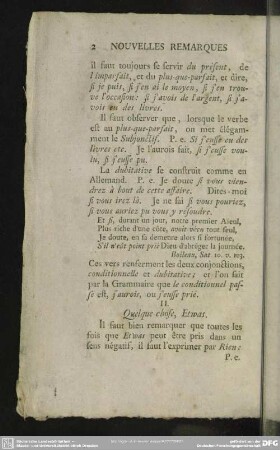 2 NOUVELLES REMARQUES
il faut toujours se servir du présent, de
l'imparfait, et du plus-que-parfait, et dire,
si je puis, si j'en ai le moyen, si j'en trou-
ve l'occasion: si j'avois de l'argent, si j'a-
vois eu des livres.
Il faut observer que, lorsque le verbe
est au plus-que-parfait, on met élégam-
ment le Subjonctif. P. e. Si j'eusse eu des
livres etc. Je l'aurois fait, si j'eusse vou-
lu, si j'eusse pu.
La dubitative se construit comme en
Allemand. P. e. Je doute si vous vien-
drez à bout de cette affaire. Dites-moi
si vous irez là. Je ne sai si vous pouriez,
si vous auriez pu vous y résoudre.
Et si, dorant un jour, notre premier Aieul,
Plus riche d'une côte, avoit vécu tout seul,
Je doute, en sa demeure alors si fortunée,
S'il n'eût point prié Dieu d'abréger la journée.
Boileau, Sat 10. v. 103.
Ces vers renferment les deux conjonctions,
conditionnelle et dubitative; et l'on sait
par la Grammaire que le conditionnel pas-
sé est, j'aurois, ou j'eusse prié.
II.
Quelque chose, Etwas.
Il faut bien remarquer que toutes les
fois que Etwas peut être pris dans un
sens négatif, il faut l'exprimer par Rien:
P. e.